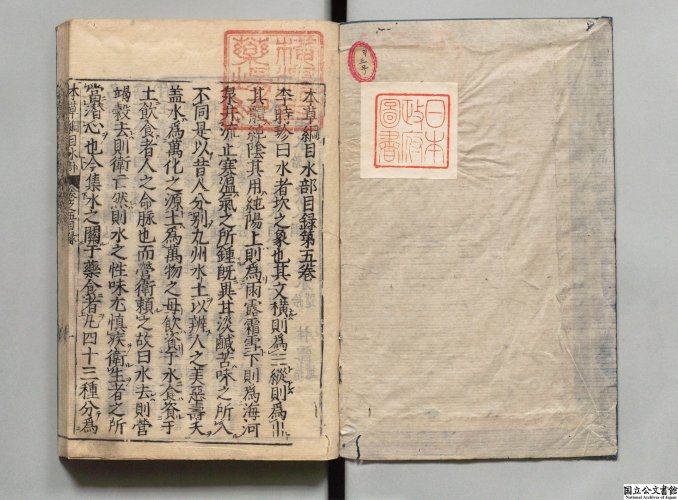 日本
政府
圖書
本草綱目水部目録第五卷
李時珍曰水者坎之象也其文横則為☵縱則為
其體純陰其用純陽上則為雨露霜雪下則為海河
泉井流止寒温氣之所鍾既異甘淡鹹苦味之所入
不同是以昔人分别九州水土以辨人之美惡壽夭
盖水為萬化之源土為萬物之母飲資于水食資于
土飲食者人之命脉也而營衛賴之故曰水去則營
竭穀去則衛亡然則水之性味尤慎疾衛生者之所
當潜心也今集水之關于藥食者凡四十三種分為
本草綱目水部 卷之五目録
国立公文書館
National Archives of Japan